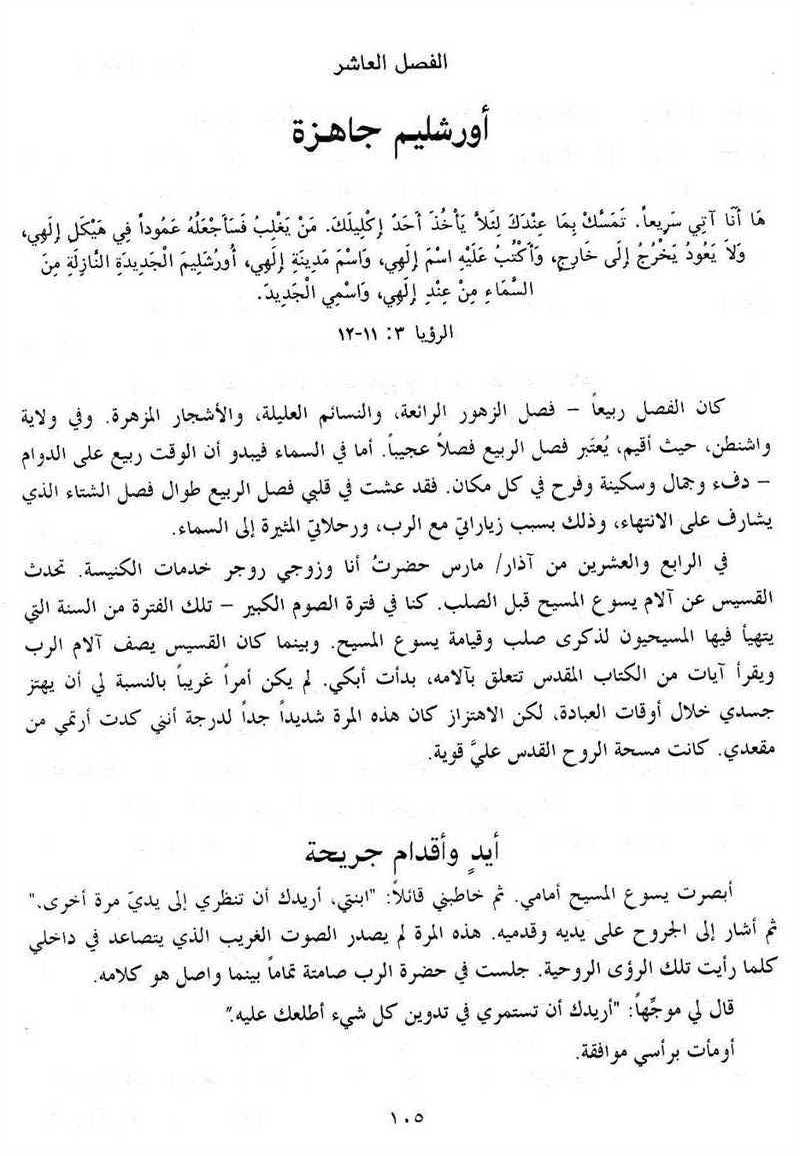 الفصل العاشر
أورشليم جاهزة
هَا أَنَا آتِي سَرِيعاً. تَمَسَّكْ بِمَا عِنْدَكَ لِئَلاَّ يَأْخُذَ أَحَدٌ إِكْلِيلَكَ. مَنْ يَغْلِبُ فَسَأَجْعَلُهُ عَمُوداً فِي هَيْكَلِ إِلَهِي،
وَلاَ يَعُودُ يَخْرُجُ إِلَى خَارِجٍ، وَأَكْتُبُ عَلَيْهِ اسْمَ إِلَهِي، وَاسْمَ مَدِينَةِ إِلَهِي، أُورُشَلِيمَ الْجَدِيدَةِ النَّازِلَةِ مِنَ
السَّمَاءِ مِنْ عِنْدِ إِلَهِي، وَاسْمِي الْجَدِيدَ.
الرؤيا ٣: ١١-١٢
كان الفصل ربيعاً – فصل الزهور الرائعة، والنسائم العليلة، والأشجار المزهرة. وفي ولاية
واشنطن، حيث أقيم، يُعتَبر فصل الربيع فصلاً عجيباً. أما في السماء فيبدو أن الوقت ربيع على الدوام
– دفء وجمال وسكينة وفرح في كل مكان. فقد عشت في قلبي فصل الربيع طوال فصل الشتاء الذي
يشارف على الانتهاء، وذلك بسبب زياراتي مع الرب، ورحلاتي المثيرة إلى السماء.
في الرابع والعشرين من آذار/ مارس حضرتُ أنا وزوجي روجر خدمات الكنيسة. تحدث
القسيس عن آلام يسوع المسيح قبل الصلب. كنا في فترة الصوم الكبير – تلك الفترة من السنة التي
يتهيأ فيها المسيحيون لذكرى صلب وقيامة يسوع المسيح. وبينما كان القسيس يصف آلام الرب
ويقرأ آيات من الكتاب المقدس تتعلق بآلامه، بدأت أبكي. لم يكن أمراً غريباً بالنسبة لي أن يهتز
جسدي خلال أوقات العبادة، لكن الاهتزاز كان هذه المرة شديداً جداً لدرجة أنني كدت أرتمي من
مقعدي. كانت مسحة الروح القدس عليَّ قوية.
أيدٍ وأقدام جريحة
أبصرت يسوع المسيح أمامي. ثم خاطبني قائلاً: "ابنتي، أريدك أن تنظري إلى يديَ مرة أخرى."
ثم أشار إلى الجروح على يديه وقدميه. هذه المرة لم يصدر الصوت الغريب الذي يتصاعد في داخلي
كلما رأيت تلك الرؤى الروحية. جلست في حضرة الرب صامتة تماماً بينما واصل هو كلامه.
قال لي موجِّهاً: "أريدك أن تستمري في تدوين كل شيء أطلعك عليه."
أومأت برأسي موافقة.
١٠٥